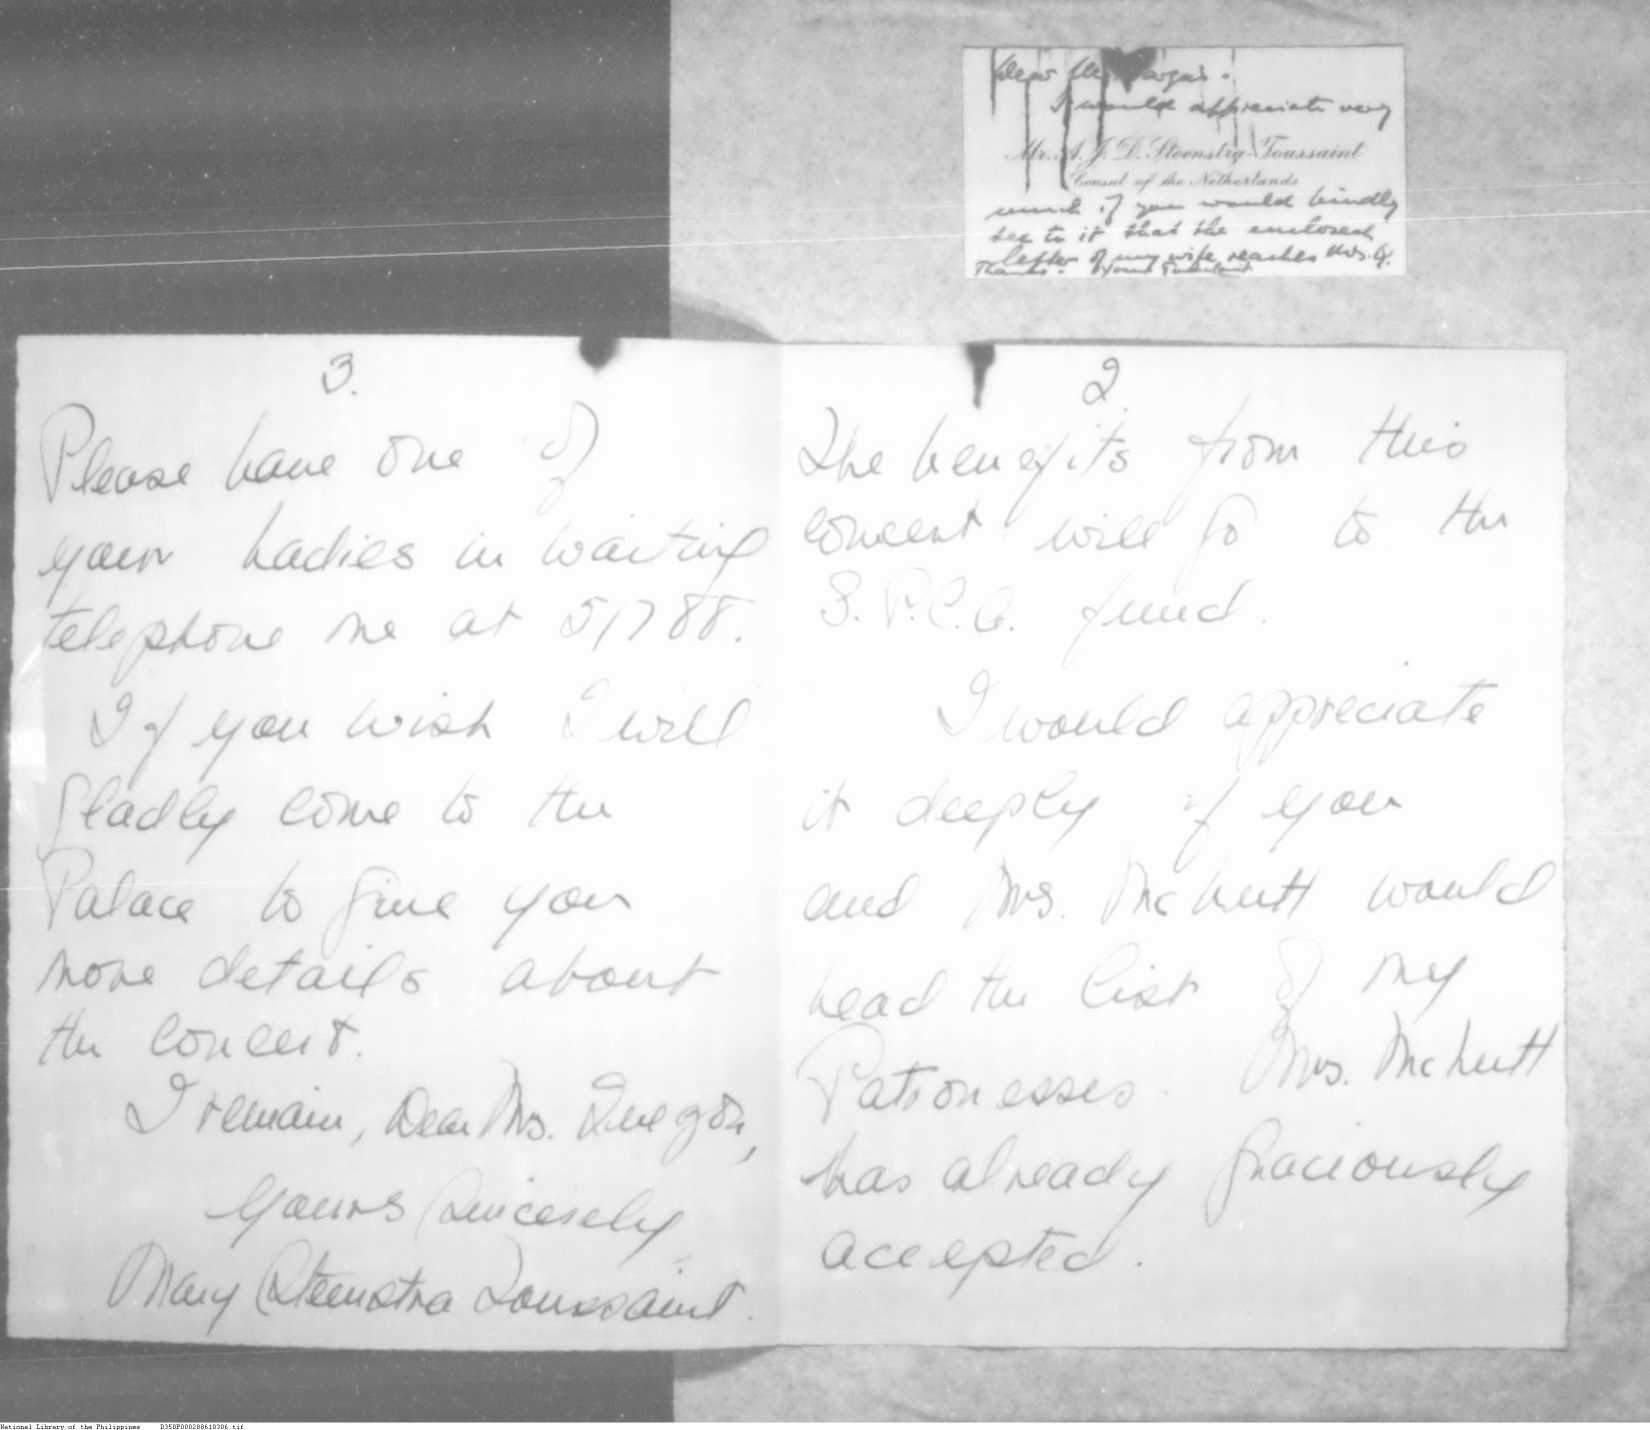 Dear Mr. Vargas.
I would appreciate very
Mr. A. J. D. Steenstra-Toussaint
Consul of the Netherlands
much if you would kindly
see to it that the enclosed
letter of my wife reaches Mrs. Q.
Thanks.
3.
Please have one of
your Ladies in waiting
telephone me at 51788.
If you wish I will
gladly come to the
Palace to give you
more details about
the concert.
I remain, Dear Mrs. Quezon,
Yours Sincerely,
Mary Steenstra Toussaint.
2
The benefits from this
concert will go to the
S.P.C.A. fund.
I would appreciate
it deeply if you
and Mrs. McNutt would
head the list of my
Patronesses. Mrs. McNutt
has already graciously
accepted.
National Library of the Philippines D350P000288610306.tif